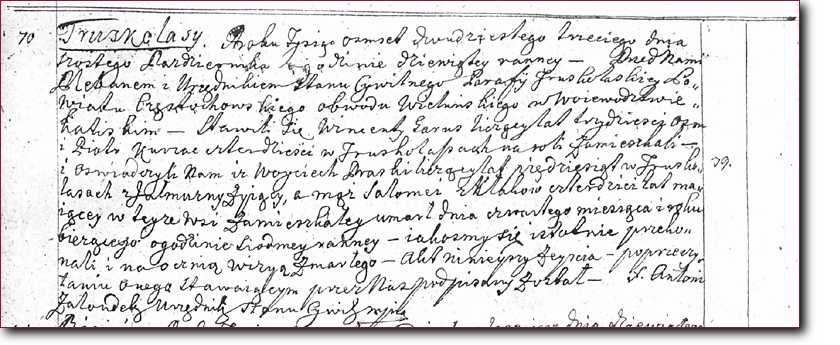 70 Truskolasy. Roku Tysiąc osmset dwudziestego trzeciego dnia
szostego Pazdziernika o godzinie dziewiątey ranney — Przed Nami
Plebanem i Urzędnikiem Stanu Cywilnego Parafy Truskolaskiey Po-
wiatu Częstochowskiego obwodu Wieluńskiego w Woiewodztwie
Kaliskim — Stawili się Wincenty Garus liczący lat trzydzieści osm
i Piotr Kurzac czterdzieści w Truskolasach na roli Zamieszkali —
i oświadczyli Nam iz Woyciech liczący lat pięćdziesiąt w Trusko- 39.
lasach z Jałmuzny zyiący, a mąz Salomei czterdzieści lat ma-
iącey w teyze wsi Zamieszkałey umarł dnia czwartego miesiąca i roku
bieżącego o godzinie siodmey ranney — iakosmy się istotnie przeko-
nali i naoczną wizyą Zmarłego — Akt ninieyszy Zeyscia — po przeczy-
taniu onego Stawaiącym przez Nas podpisany Został — X. Antoni
Urzędnik Stanu Cywilnego